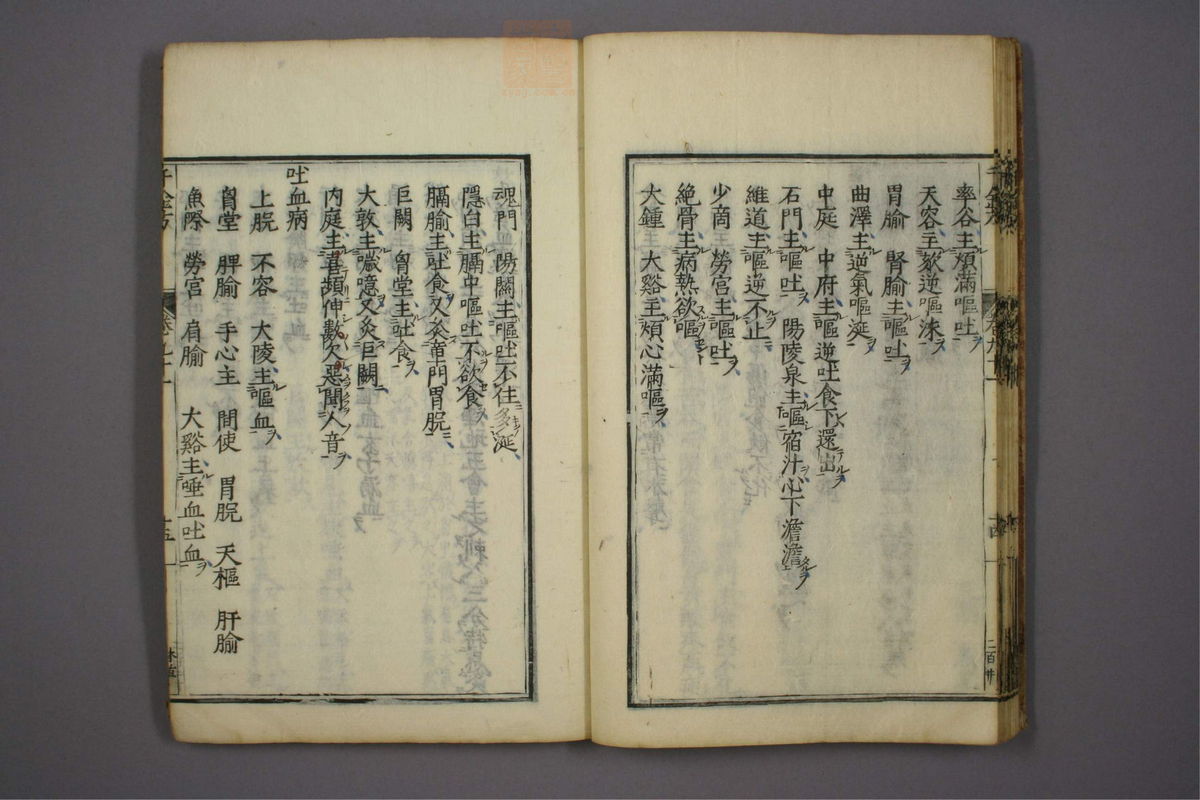 率谷主煩滿嘔吐
天容主欬逆嘔沫
胃腧　腎腧主嘔吐
曲澤主逆氣嘔涎
中庭　中府主嘔逆吐食下還出
石門主嘔吐　陽陵泉主嘔宿汁心下澹澹
維道主嘔逆不止
少商　勞宮主嘔吐
絶骨主病熱欲嘔
大鍾　大谿主煩心滿嘔
魂門　陽關主嘔吐不住多涎
隱白主膈中嘔吐不欲食
膈腧主吐食又灸章門胃脘
巨闕　胷堂主吐食
大敦主噦噫又灸巨闕
内庭主喜頻伸數欠惡聞人音
吐血病
上脘　不容　大陵主嘔血
胷堂　脾腧　手心主　間使　胃脘　天樞　肝腧
魚際　勞宮　肩腧　大谿主唾血吐血